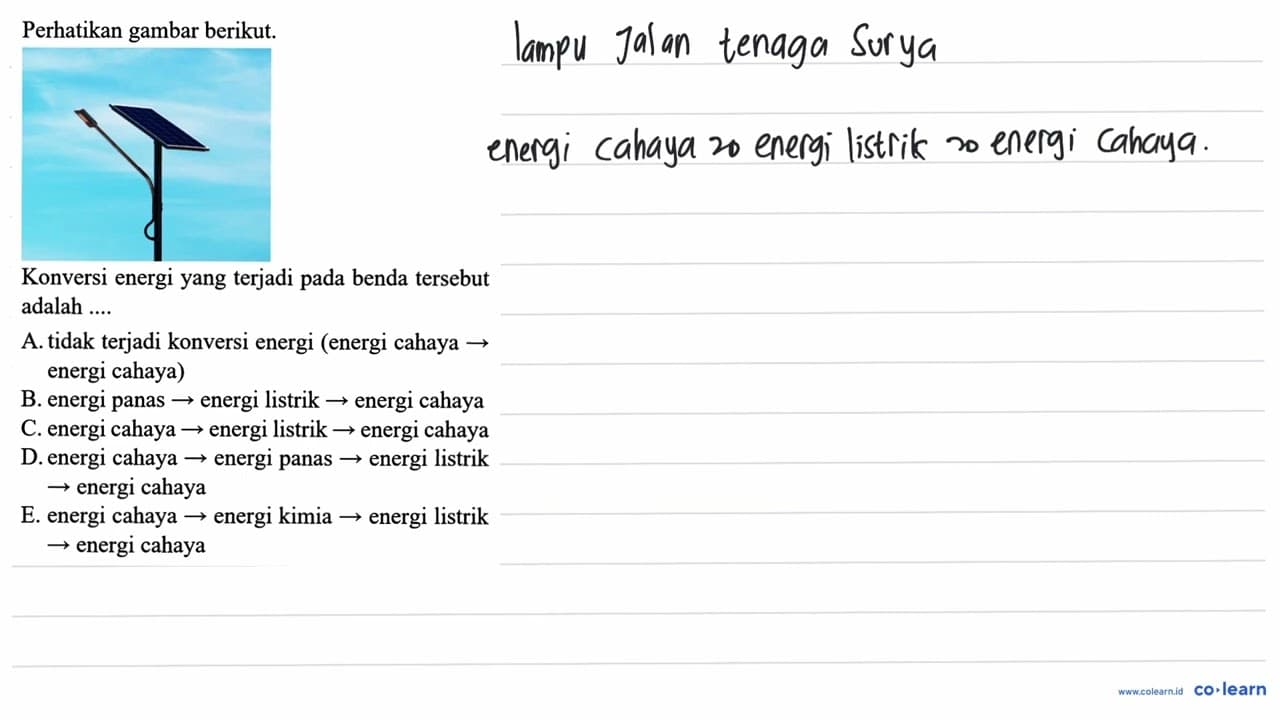 Perhatikan gambar berikut.
lampu Jalan tenaga Surya
energi cahaya → energi listrik → energi Cahaya.
Konversi energi yang terjadi pada benda tersebut
adalah ....
A. tidak terjadi konversi energi (energi cahaya →
energi cahaya)
B. energi panas → energi listrik → energi cahaya
C. energi cahaya → energi listrik → energi cahaya
D. energi cahaya → energi panas → energi listrik
→ energi cahaya
E. energi cahaya → energi kimia → energi listrik
→ energi cahaya
www.colearn.id co·learn